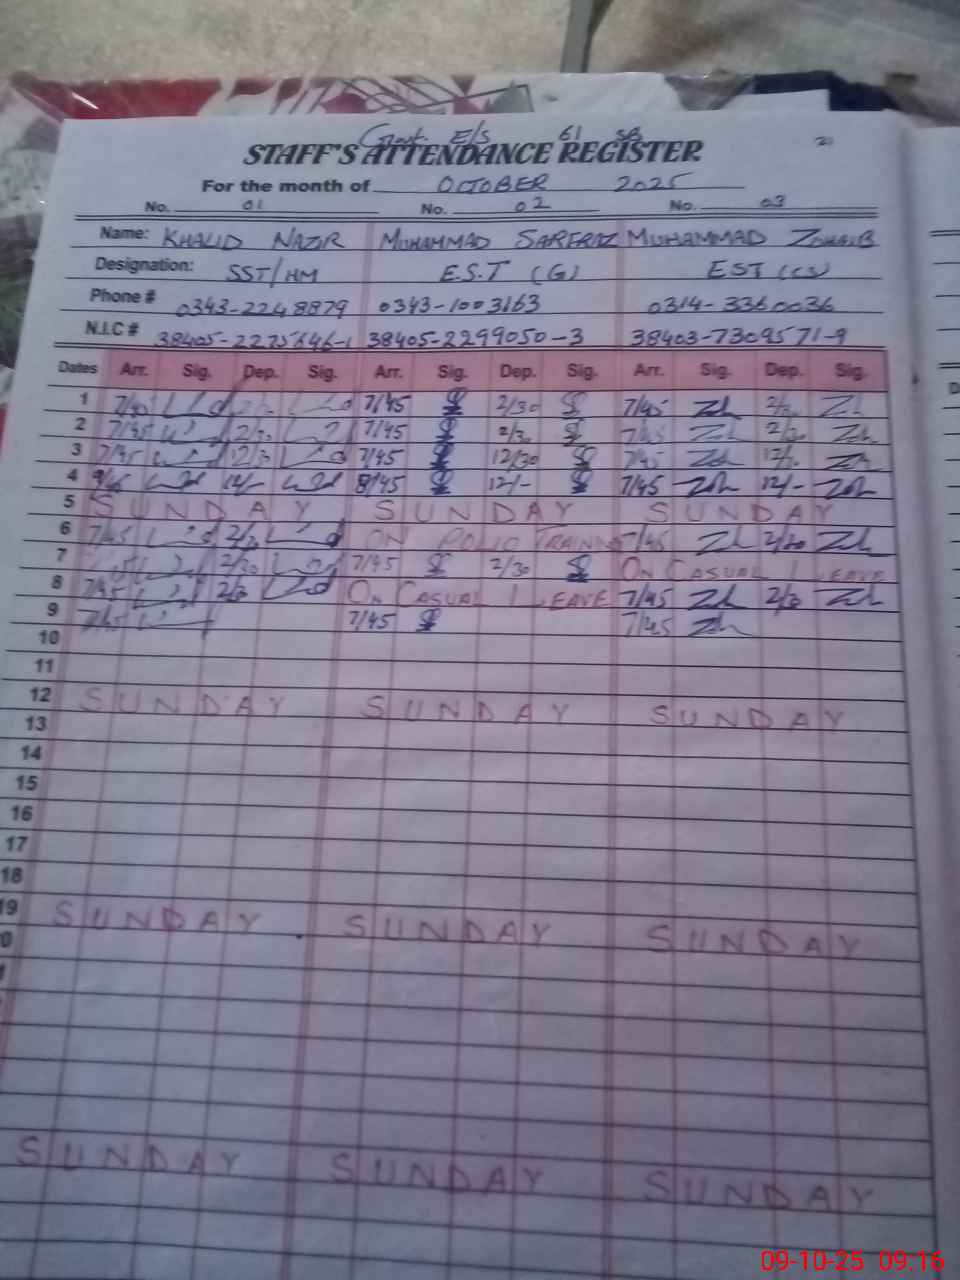 Govt. E/S 61 SB
STAFF'S ATTENDANCE REGISTER
For the month of OCTOBER 2025
No. 01 No. 02 No. 03
Name: KHALID NAZIR MUHAMMAD SARFRAZ MUHAMMAD ZOHAIB
Designation: SST/HM E.S.T (G) EST (CS)
Phone # 0343-2248879 0343-1003163 0314-3360036
N.I.C # 38405-2275646-1 38405-2299050-3 38403-7309571-9
Dates Arr. Sig. Dep. Sig. Arr. Sig. Dep. Sig. Arr. Sig. Dep. Sig.
1 7/45 2/30 7/45 2/30
2 7/45 2/30 7/45 2/30 7/45 2/30
3 7/45 12/3 7/45 12/30 7/45
4 8/45 12/- 7/45 12/-
5 SUNDAY SUNDAY SUNDAY
6 7/45 2/30 ON POLIO TRAINING 7/45 2/30
7 2/30 7/45 2/30 ON CASUAL LEAVE
8 7/45 2/3 ON CASUAL LEAVE 7/45 2/3
9 7/45 7/45 7/45
10
11
12 SUNDAY SUNDAY SUNDAY
13
14
15
16
17
18
19 SUNDAY SUNDAY SUNDAY
0
SUNDAY SUNDAY SUNDAY
09-10-25 09:16